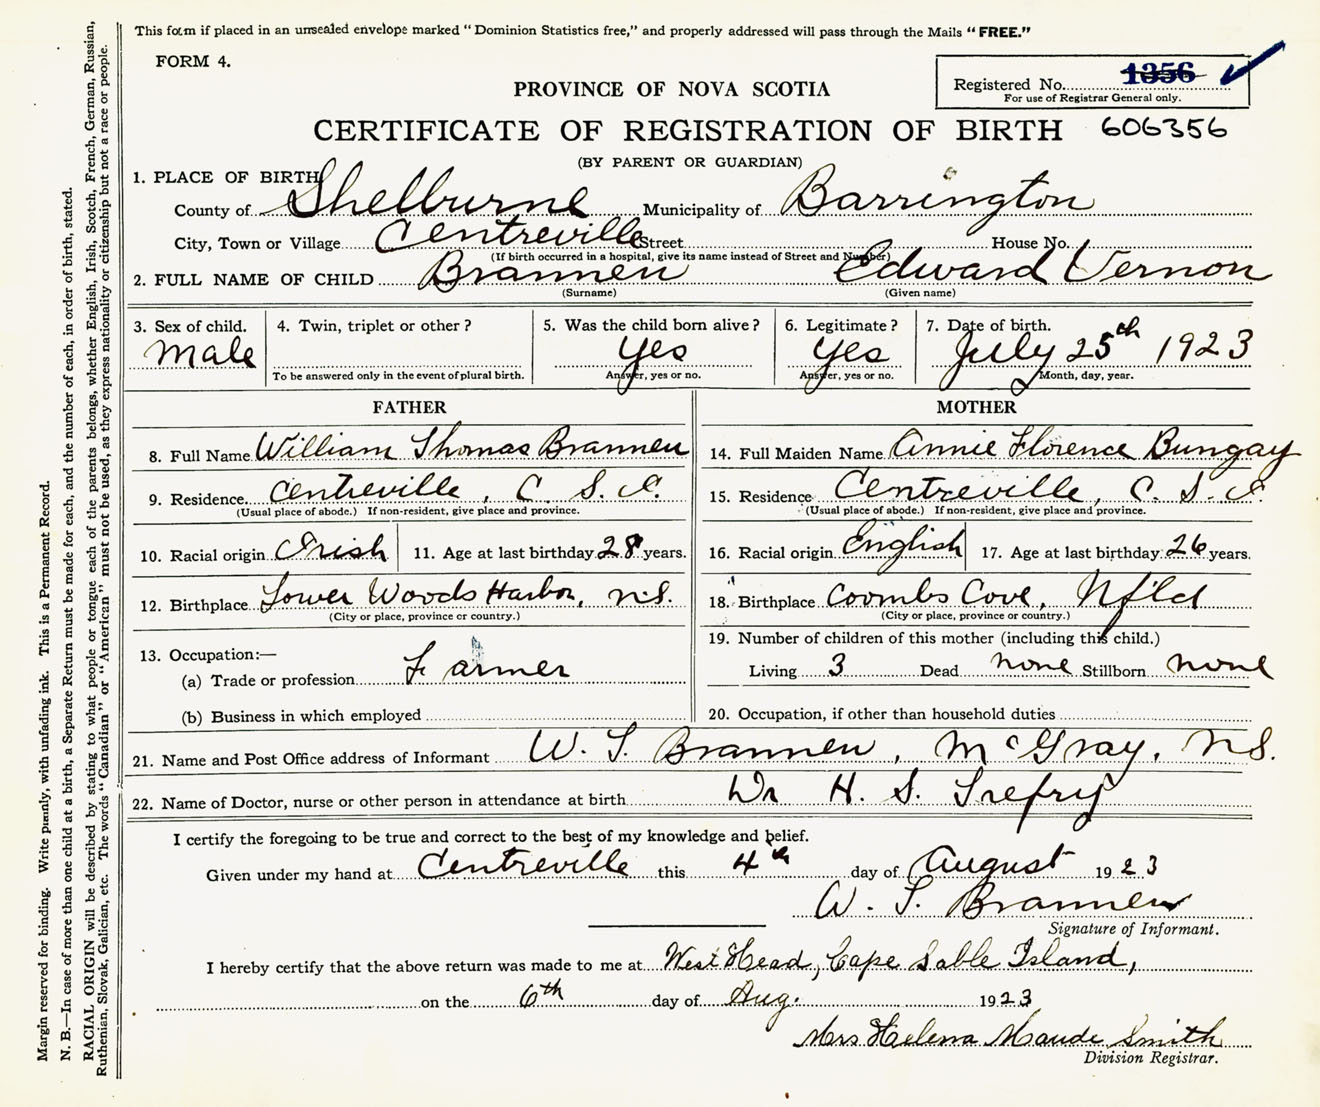 This form if placed in an unsealed envelope marked "Dominion Statistics free," and properly addressed will pass through the Mails "FREE."
FORM 4.
Registered No. 1356
For use of Registrar General only.
PROVINCE OF NOVA SCOTIA
CERTIFICATE OF REGISTRATION OF BIRTH 606356
(BY PARENT OR GUARDIAN)
1. PLACE OF BIRTH
County of Shelburne Municipality of Barrington
City, Town or Village Centreville Street House No.
(If birth occurred in a hospital, give its name instead of Street and Number)
2. FULL NAME OF CHILD Brannen Edward Vernon
(Surname) (Given name)
3. Sex of child. 4. Twin, triplet or other? 5. Was the child born alive? 6. Legitimate? 7. Date of birth.
Male Yes Yes July 25th 1923
To be answered only in the event of plural birth. Answer, yes or no. Answer, yes or no. Month, day, year.
FATHER
8. Full Name William Thomas Brannen
9. Residence Centreville, C. S. I.
(Usual place of abode.) If non-resident, give place and province.
10. Racial origin Irish 11. Age at last birthday 28 years.
12. Birthplace Lower Woods Harbor, N.S.
(City or place, province or country.)
13. Occupation:—
(a) Trade or profession Farmer
(b) Business in which employed
MOTHER
14. Full Maiden Name Annie Florence Bungay
15. Residence Centreville, C. S. I.
(Usual place of abode.) If non-resident, give place and province.
16. Racial origin English 17. Age at last birthday 26 years.
18. Birthplace Coombs Cove, Nfld
(City or place, province or country.)
19. Number of children of this mother (including this child.)
Living 3 Dead none Stillborn none
20. Occupation, if other than household duties
21. Name and Post Office address of Informant W. T. Brannen, McGray, N.S.
22. Name of Doctor, nurse or other person in attendance at birth Dr H. S. Trefry
I certify the foregoing to be true and correct to the best of my knowledge and belief.
Given under my hand at Centreville this 4th day of August 1923
W. T. Brannen
Signature of Informant.
I hereby certify that the above return was made to me at West Head, Cape Sable Island,
on the 6th day of Aug. 1923
Mrs Helena Maude Smith
Division Registrar.
Margin reserved for binding. Write plainly, with unfading ink. This is a Permanent Record.
N. B.—In case of more than one child at a birth, a Separate Return must be made for each, and the number of each, in order of birth, stated.
RACIAL ORIGIN will be described by stating to what people or tongue each of the parents belongs, whether English, Irish, Scotch, French, German, Russian,
Ruthenian, Slovak, Galician, etc. The words "Canadian" or "American" must not be used, as they express nationality or citizenship but not a race or people.